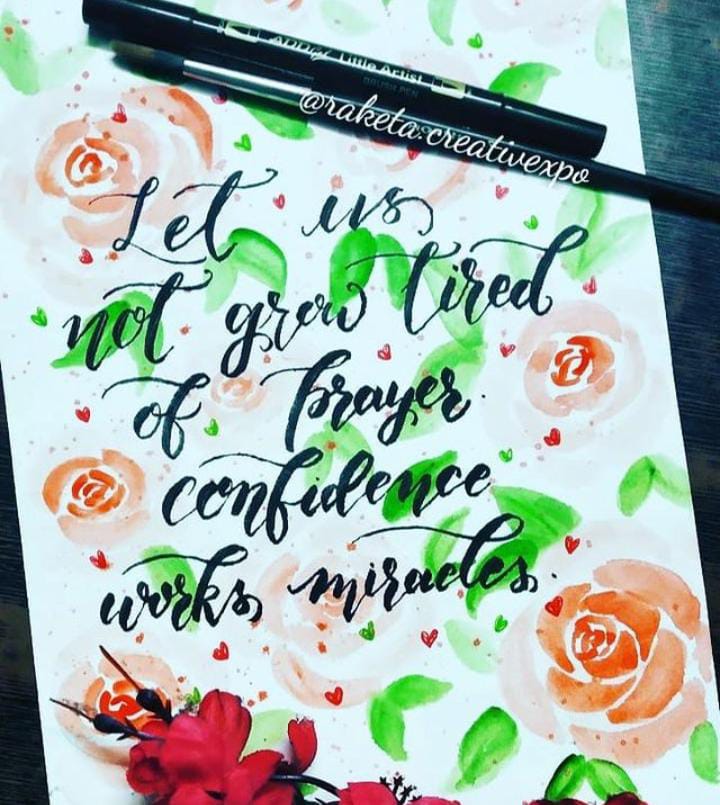 ADDGEL Little Artist
BRUSH PEN
@raketa.creativexpo
Let us
not grow tired
of prayer.
confidence
works miracles.